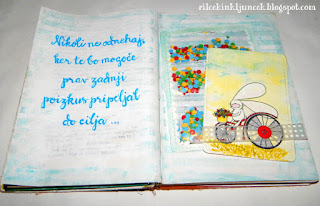 rilcekinkljuncek.blogspot.com
Nikoli ne odnehaj,
ker te bo mogoče
prav zadnji
poizkus pripeljal
do cilja ...